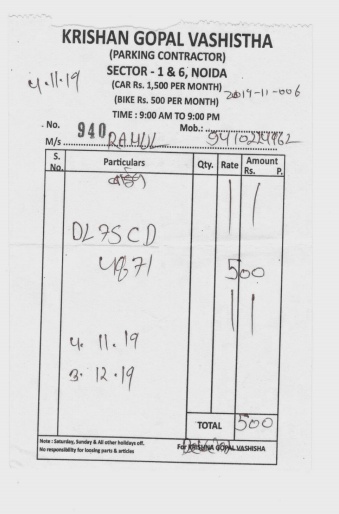 KRISHAN GOPAL VASHISTHA
(PARKING CONTRACTOR)
SECTOR - 1 & 6, NOIDA
4.11.19
(CAR Rs. 1,500 PER MONTH)
2019-11-006
(BIKE Rs. 500 PER MONTH)
TIME : 9:00 AM TO 9:00 PM
No. 940 Mob.:
M/s RAHUL 9410224962
S. No. Particulars Qty. Rate Amount Rs. P.
DL7SCD
4871 500
4.11.19
3.12.19
TOTAL 500
Note : Saturday, Sunday & All other holidays off.
No responsibility for loosing parts & articles
For KRISHNA GOPAL VASHISHA